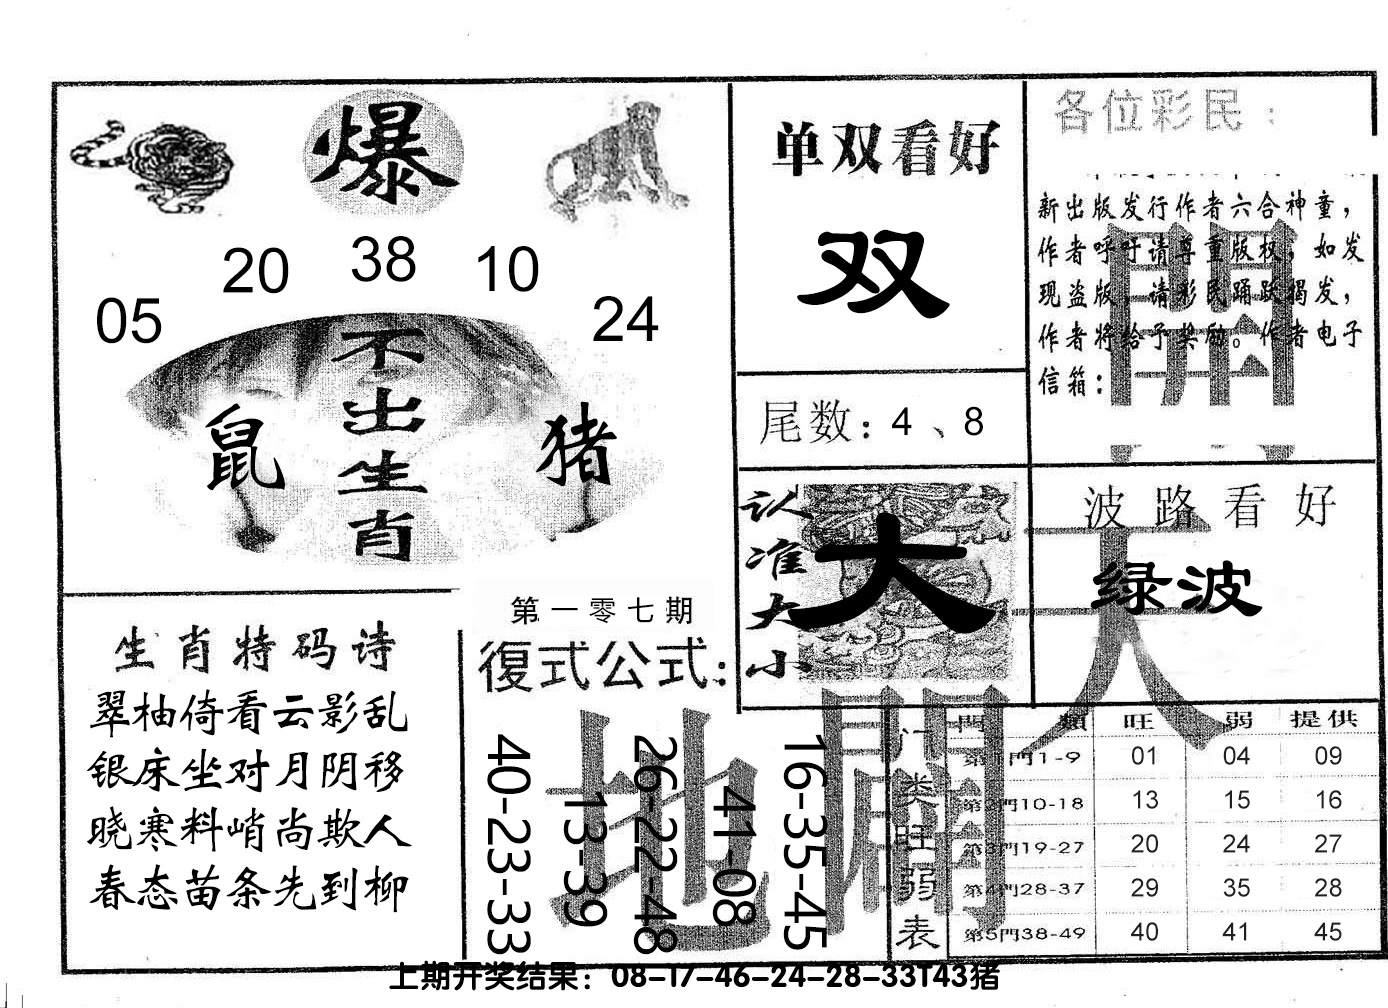 爆
05
20
38
10
24
不出生肖
鼠
猪
单双看好
双
尾数：4、8
各位彩民：
新出版发行作者六合神童，
作者呼吁请尊重版权，如发
现盗版，请彩民踊跃揭发，
作者将给予奖励。作者电子
信箱：
開
认准大小
大
波路看好
绿波
天
生肖特码诗
翠柚倚看云影乱
银床坐对月阴移
晓寒料峭尚欺人
春态苗条先到柳
第一零七期
復式公式：
40-23-33
13-39
26-22-48
41-08
16-35-45
地
門类旺弱表
門類 旺 弱 提供
第1門1-9 01 04 09
第2門10-18 13 15 16
第3門19-27 20 24 27
第4門28-37 29 35 28
第5門38-49 40 41 45
上期开奖结果：08-17-46-24-28-33T43猪